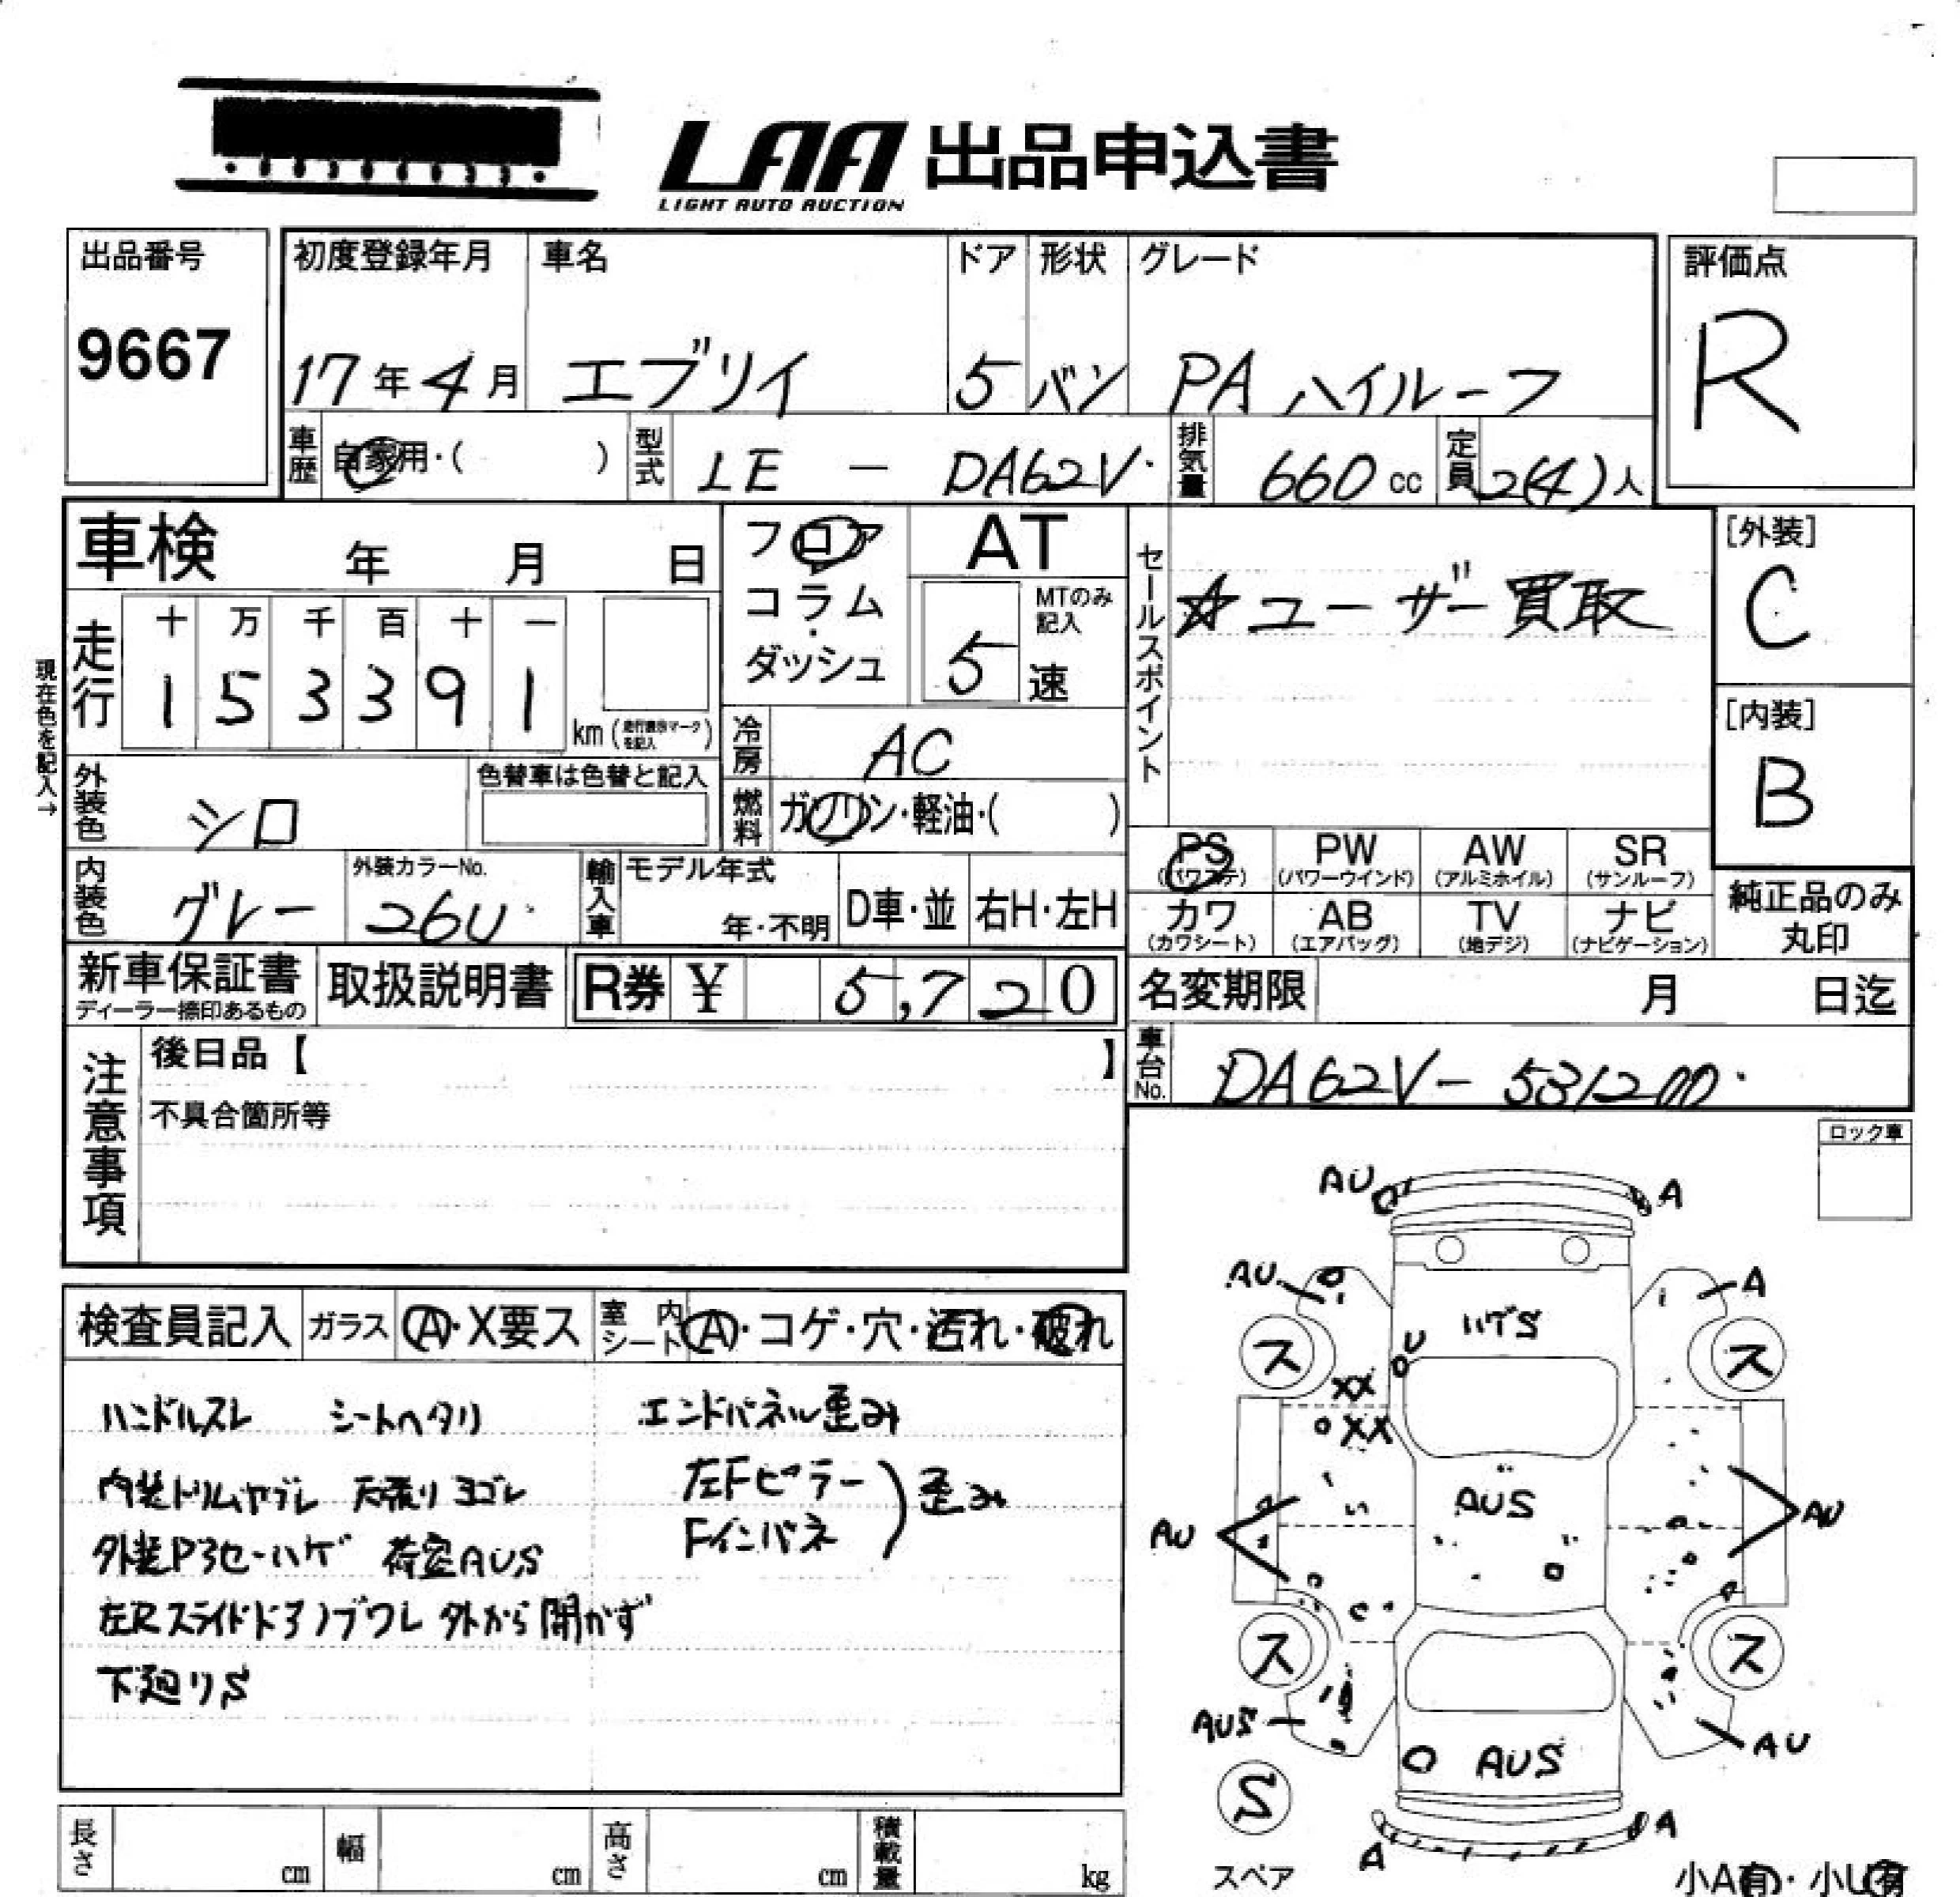 LAA 出品申込書
LIGHT AUTO AUCTION
出品番号
9667
初度登録年月 車名 ドア 形状 グレード
17年4月 エブリイ 5 バン PA ハイルーフ
評価点
R
車歴 自家用・( ) 型式 LE - DA62V 排気量 660cc 定員 2(4)人
車検 年 月 日
フロア
コラム
・
ダッシュ
AT
MTのみ
記入
5速
セールスポイント
☆ユーザー買取
[外装]
C
[内装]
B
現在色を記入→
走行
十 万 千 百 十 一
1 5 3 3 9 1
km(走行表示マークを記入)
冷房 AC
燃料 ガソリン・軽油・( )
外装色 シロ
色替車は色替と記入
内装色 グレー
外装カラーNo.
26U
輸入車 モデル年式
年・不明 D車・並 右H・左H
PS PW AW SR
(パワステ) (パワーウインド) (アルミホイル) (サンルーフ)
カワ AB TV ナビ
(カワシート) (エアバッグ) (地デジ) (ナビゲーション)
純正品のみ
丸印
新車保証書 取扱説明書 R券 ¥ 5,720
ディーラー捺印あるもの
名変期限 月 日迄
車台No. DA62V-
注意事項
後日品【 】
不具合箇所等
ロック車
検査員記入 ガラス A・X要ス 室内シート A・コゲ・穴・汚れ・破れ
ハンドルスレ シートヘタリ エンドパネル歪み
内装トリムヤブレ 天張りヨゴレ 左Fピラー
Fインパネ ) 歪み
荷室AUS
左Rスライドドアノブワレ 外から開かず
下廻りS
AU A
AU A
ハゲS
ス ス
U
XX
XX
AUS
AU AU
ス ス
AUS AU
AUS
S
スペア
A A
小A有・小U有
長さ cm 幅 cm 高さ cm 積載量 kg